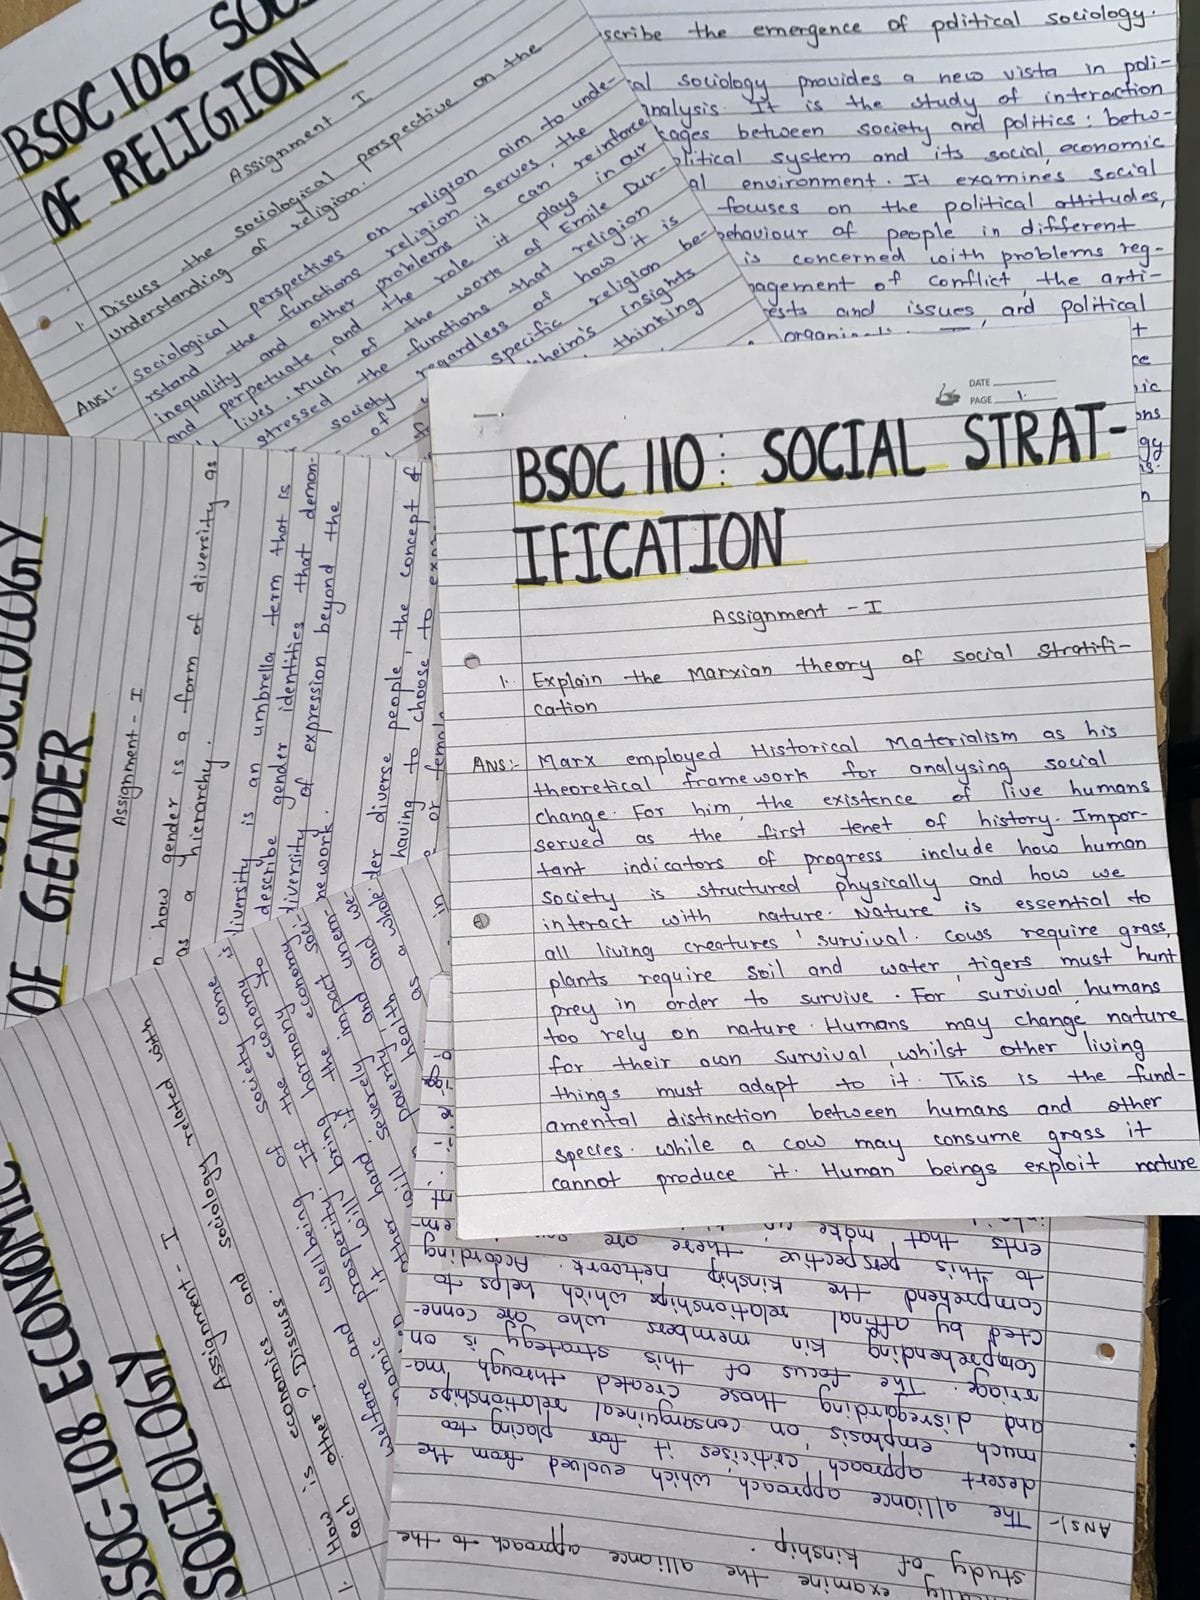 BSOC 106 SOC
OF RELIGION
Assignment I
1. Discuss the sociological perspective on the
understanding of religion.
ANS:- Sociological perspectives on religion aim to unde-
rstand the functions religion serves, the
inequality and other problems it can reinforce
and perpetuate, and the role it plays in our
lives. Much of the work of Emile Dur-
stressed the functions that religion
society regardless of how it is
of specific religion be-
heim's insights
thinking
scribe the emergence of political sociology.
al sociology provides a new vista in poli-
analysis. It is the study of interaction
kages between society and politics: betw-
olitical system and its social, economic
al environment. It examines social
focuses on the political attitudes,
behaviour of people in different
is concerned with problems reg-
nagement of conflict, the arti-
rests and issues, and political
DATE
PAGE 1.
BSOC 110: SOCIAL STRAT-
IFICATION
Assignment - I
1. Explain the Marxian theory of social Stratifi-
cation
ANS:- Marx employed Historical Materialism as his
theoretical framework for analysing social
change. For him, the existence of live humans
served as the first tenet of history. Impor-
tant indicators of progress include how human
society is structured physically and how we
interact with nature. Nature is essential to
all living creatures' survival. Cows require grass,
plants require soil and water, tigers must hunt
prey in order to survive. For survival, humans
too rely on nature. Humans may change nature
for their own survival, whilst other living
things must adapt to it. This is the fund-
amental distinction between humans and other
species. While a cow may consume grass it
cannot produce it. Human beings exploit nature
SOCIOLOGY
OF GENDER
Assignment - I
how gender is a form of diversity as
as a hierarchy.
diversity is an umbrella term that is
describe gender identities that demon-
diversity of expression beyond the
mework.
der diverse people, the concept of
having to choose to
or female
BSOC-108 ECONOMIC
SOCIOLOGY
Assignment - I
1. How is economics and sociology related with
each other? Discuss.
welfare and wellbeing of society come
prosperity. If the economy
it will bring harmony to
other hand if the economy
severely impact soci-
poverty and unem
health and we
as a whole
ically examine the alliance approach to the
study of kinship.
ANS:- The alliance approach, which evolved from the
desert approach, criticises it for placing too
much emphasis on consanguineal relationships
and disregarding those created through ma-
rriage. The focus of this strategy is on
comprehending kin members who are conne-
cted by affinal relationships which helps to
comprehend the kinship network. According
to this perspective there are
ents that make